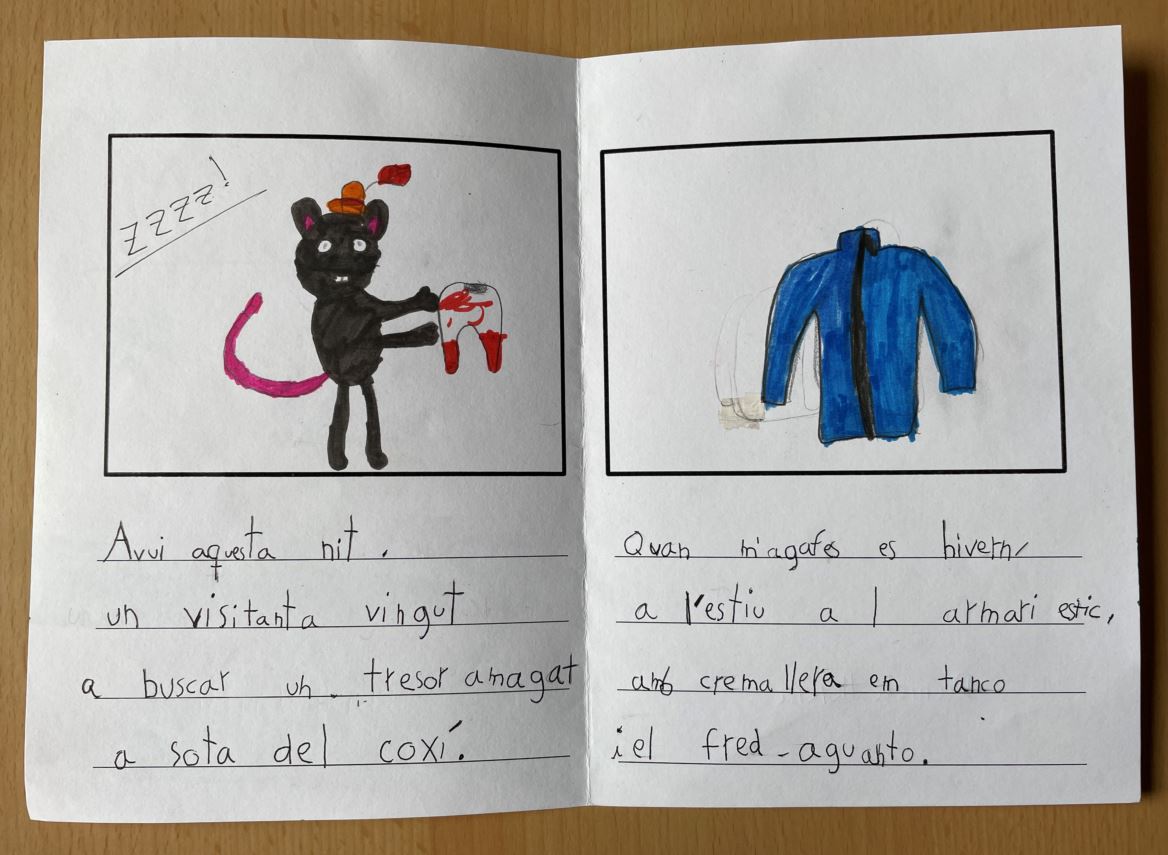 ZZZZ!
Avui aquesta nit.
un visitanta vingut
a buscar un tresor amagat
a sota del coxí.
Quan m'agafes es hivern,
a l'estiu a l armari estic,
amb cremallera em tanco
i el fred aguanto.